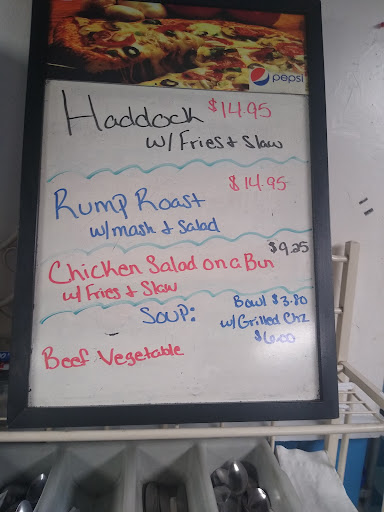 pepsi
Haddock $14.95
w/ Fries & Slaw
Rump Roast $14.95
w/ mash & Salad
Chicken Salad on a Bun $9.25
w/ Fries & Slaw
Soup: Bowl $3.80
w/ Grilled Chz
$6.00
Beef Vegetable